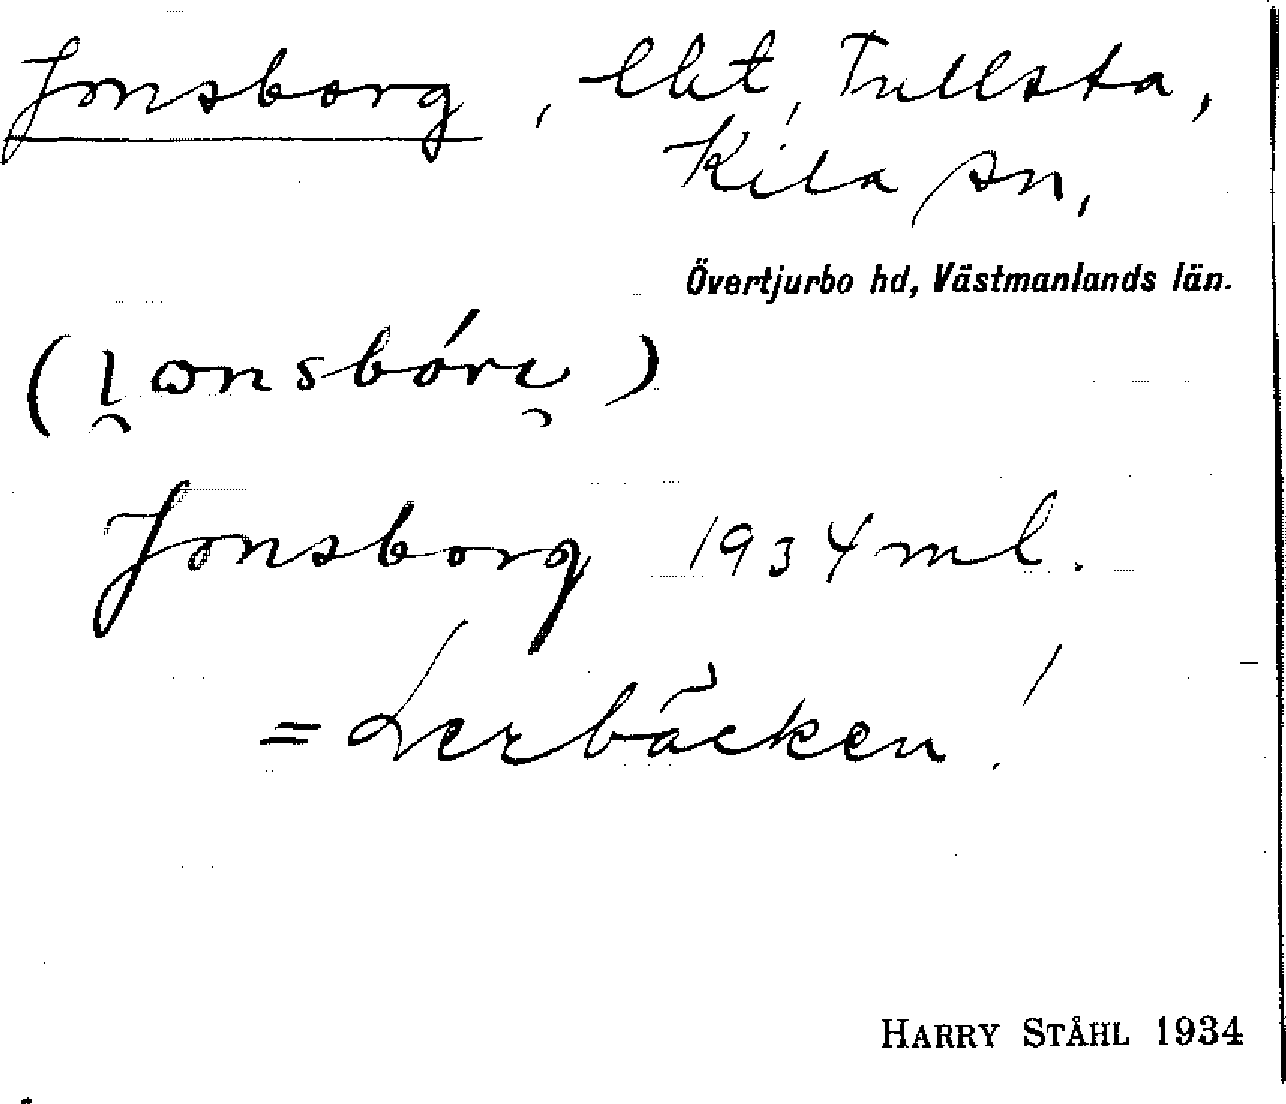 Jonsborg, lht, Tullsta,
Kila sn,
Övertjurbo hd, Västmanlands län.
Jonsborg 1934 ml.
= Lerbäcken!
HARRY STÅHL 1934